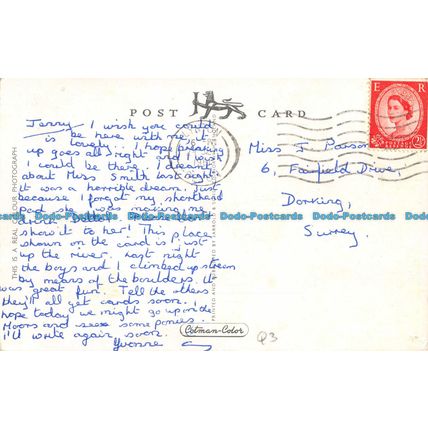 POST CARD
Jerry, I wish you could
be here with me it
is lovely. I hope
up goes all right and I wish
I could be there. I dreamt
about Miss Smith last night
it was a horrible dream. Just
because I forgot my shorthand
pad she was making me
drink
show it to her! This place
shown on the card is just
up the river. Last night
the boys and I climbed upstream
by means of the boulders. It
was great fun. Tell the others
they'll all get cards soon. I
hope today we might go up on the
Moors and see some ponies.
I'll write again, soon.
Yvonne
THIS IS A REAL COLOUR PHOTOGRAPH
Cotman-Color
E R
2½
Miss J Parson
6, Fairfield Drive,
Dorking,
Surrey.
Dodo-Postcards Dodo-Postcards Dodo-Postcards Dodo-Postcards
Q3